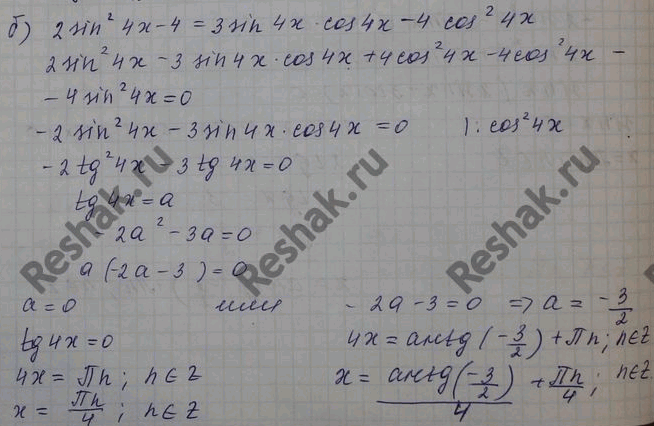 б) 2sin² 4x - 4 = 3sin 4x · cos4x - 4 · cos² 4x
2sin² 4x - 3 sin4x · cos4x + 4cos² 4x - 4cos² 4x -
- 4sin² 4x = 0
- 2sin² 4x - 3sin4x · cos4x = 0 ): cos² 4x
- 2tg² 4x - 3tg 4x = 0
tg 4x = a
- 2a² - 3a = 0
a (-2a - 3) = 0
a = 0 или - 2a - 3 = 0 => a = -3/2
tg 4x = 0 4x = arctg (-3/2) + Πn; n∈Z
4x = Πn; n∈Z x = arctg(-3/2)/4 + Πn/4; n∈Z
x = Πn/4; n∈Z
Reshak.ru
Reshak.ru
Reshak.ru
Reshak.ru